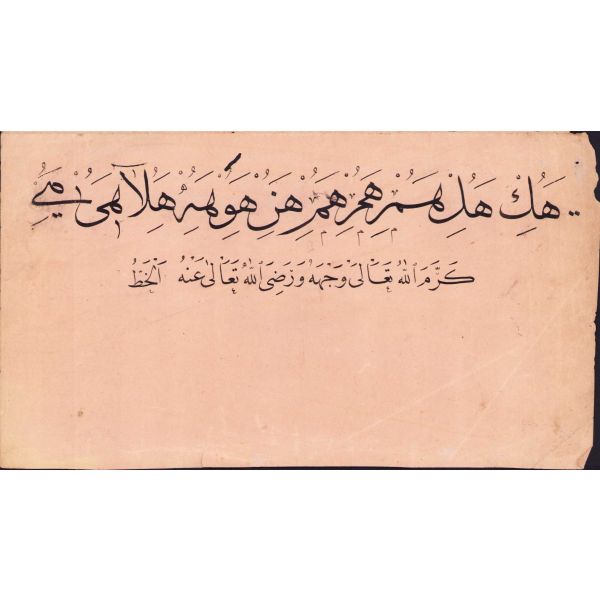 هك هل هم هجر هم هن هو هه هلا هى مى
كَرَّمَ اللهُ تَعَالَى وَجْهَهُ وَرَضِىَ اللهُ تَعَالَى عَنْهُ اَلْخَطُّ